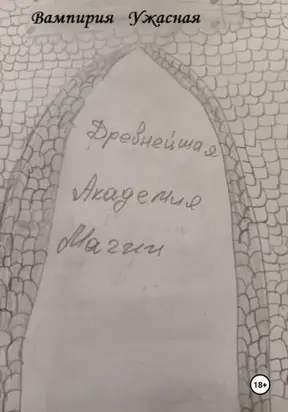 Вампирия Ужасная
Древнейшая
Академия
Магии
18+